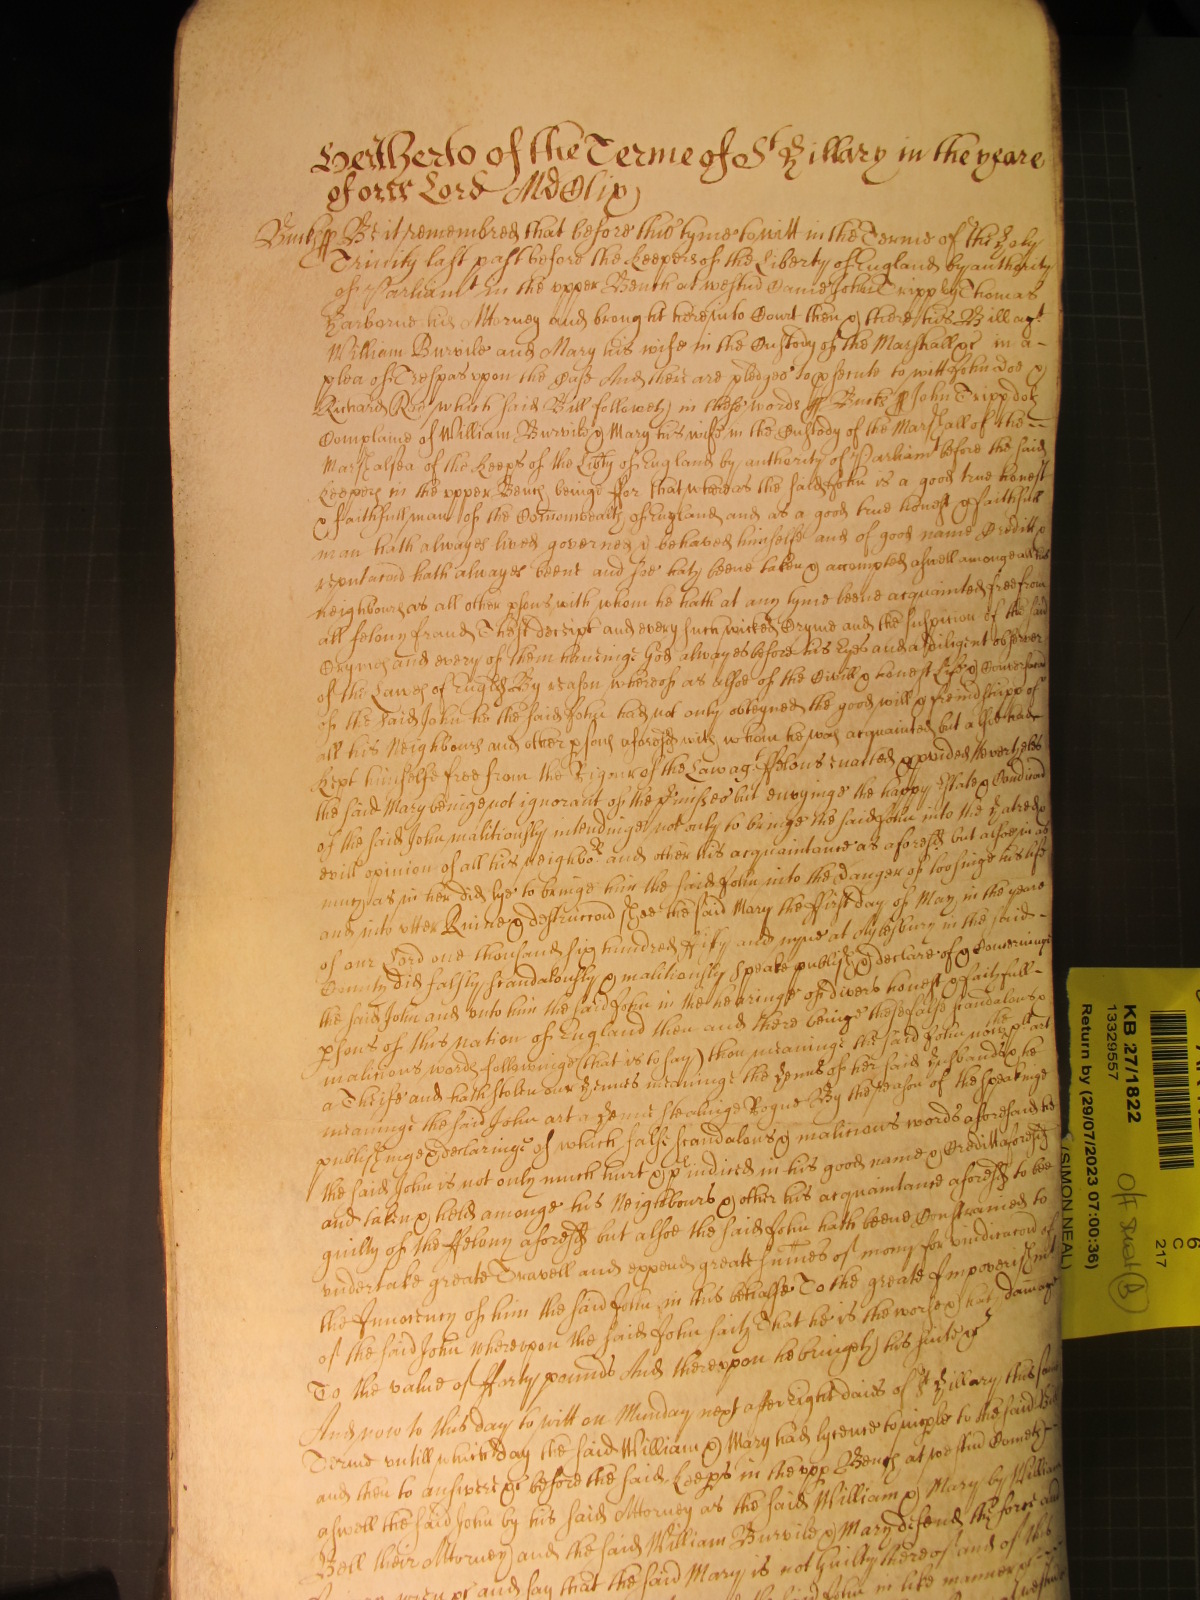 Hertherto of the Terme of St Hillary in the yeare
of our Lord MDClix
Bucks ff Be it remembred that before this tyme to witt in the Terme of the Holy
Trinity last past before the Keepers of the Liberty of England by authority
of Parliamt in the upper Bench at Westmr Came John Tripp by Thomas
Harborne his Attorney and brought here into Court then & there his Bill agt
William Burvile and Mary his wife in the Custody of the Marshall &c in a
plea of Trespas upon the Case And there are pledges to psecute to witt John Doe &
Richard Roe which said Bill followeth in these words ff Bucks ff John Tripp doth
Complaine of William Burvile & Mary his wife in the Custody of the Marshall of the
Marshalsea of the Keeps of the Libty of England by authority of Parliamt before the said
Keepers in the upper Bench beinge ffor that whereas the said John is a good true honest
& faithfull man of the Comonwealth of England and as a good true honest & faithfull
man hath alwayes lived governed & behaved himselfe and of good name Creditt &
reputacond hath alwayes beene and soe hath beene taken & accompted aswell amonge all his
Neighbours as all other psons with whom he hath at any tyme beene acquainted free from
all felony fraud Theft deceipt and every such wicked Cryme and the suspicion of the said
Crymes and every of them haveinge God alwayes before his Eyes and a diligent observer
of the Lawes of Engld By reason whereof as alsoe of the Civill & honest Life & Conversacon
of the said John he the said John had not only obteyned the good will & freindshipp of
all his Neighbours and other psons aforesd with whom he was acquainted but alsoe had
kept himselfe free from the Rigour of the Law agt ffelons enacted & pvided Nevertheles
the said Mary beinge not ignorant of the pmisses but envyinge the happy Estate & Condicon
of the said John malitiously intendinge not only to bringe the said John into the Hatred &
evill opinion of all his neighbors and other his acquaintance as aforesd but alsoe in as
much as in her did lye to bringe him the said John into the Danger of loosinge his life
and into utter Ruine & destruccon Shee the said Mary the ffirst day of May in the yeare
of our Lord one thousand six hundred ffifty and nyne at Aylesbury in the said
County did falsly scandalously & malitiously speake publish & declare of & Concerninge
the said John and unto him the said John in the hearinge of divers honest & faithfull
psons of this nation of England then and there beinge these false scandalous &
malitious words followinge (that is to say) thou meaninge the said John the now plt art
a Theife and hath stolen our Henns meaninge the Henns of her said Husband & he
meaninge the said John art a Henne stealinge Rogue By the reason of the speakinge
publishinge & declaringe of which false scandalous & malicious words aforesaid he
the said John is not only much hurt & piudiced in his good name & Creditt aforesd
and taken & held amonge his Neighbours & other his acquaintance aforesd to bee
guilty of the ffelony aforesd but alsoe the said John hath beene Constrained to
undertake greate Travell and expend greate sumes of mony for vindicacon of
the Innocency of him the said John in this behalfe To the greate Impoverishmt
of the said John whereupon the said John saith That he is the worse & hath damage
To the value of fforty pounds And thereupon he bringeth his suite &c
And now to this day to witt on Munday next after Eight daies of St Hillary this same
Terme untill which day the said William & Mary had lycence to imple to the said Bill
and then to answere &c before the said Keeps in the upp Bench at Westmr Cometh
aswell the said John by his said Attorney as the said William & Mary by William
Bell their Attorney and the said William Burvile & Mary defend the force and
when &c and say that the said Mary is not Guilty thereof and of this
the said John in like manner &c
KB 27/1822
13329557
Return by (29/07/2023 07:00:36)
(SIMON NEAL)
6
C
217
B